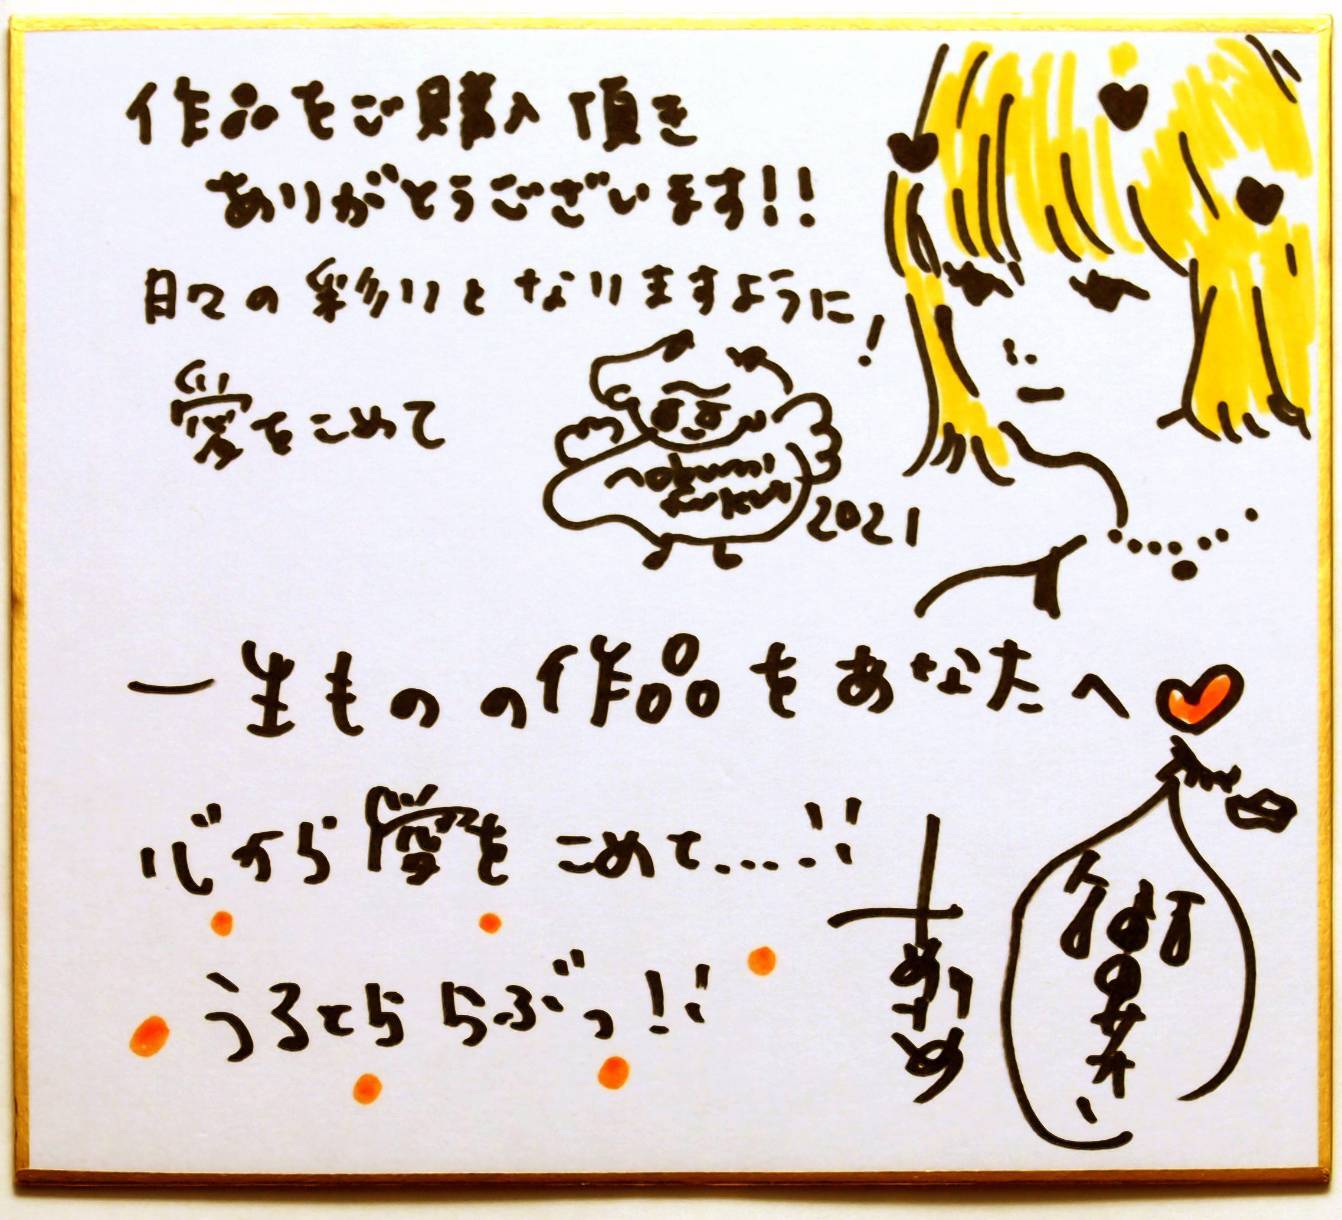 作品をご購入頂き
ありがとうございます!!
日々の彩りとなりますように!
愛をこめて
2021
一生ものの作品をあなたへ
心から愛をこめて....!!
うるとららぶっ!!